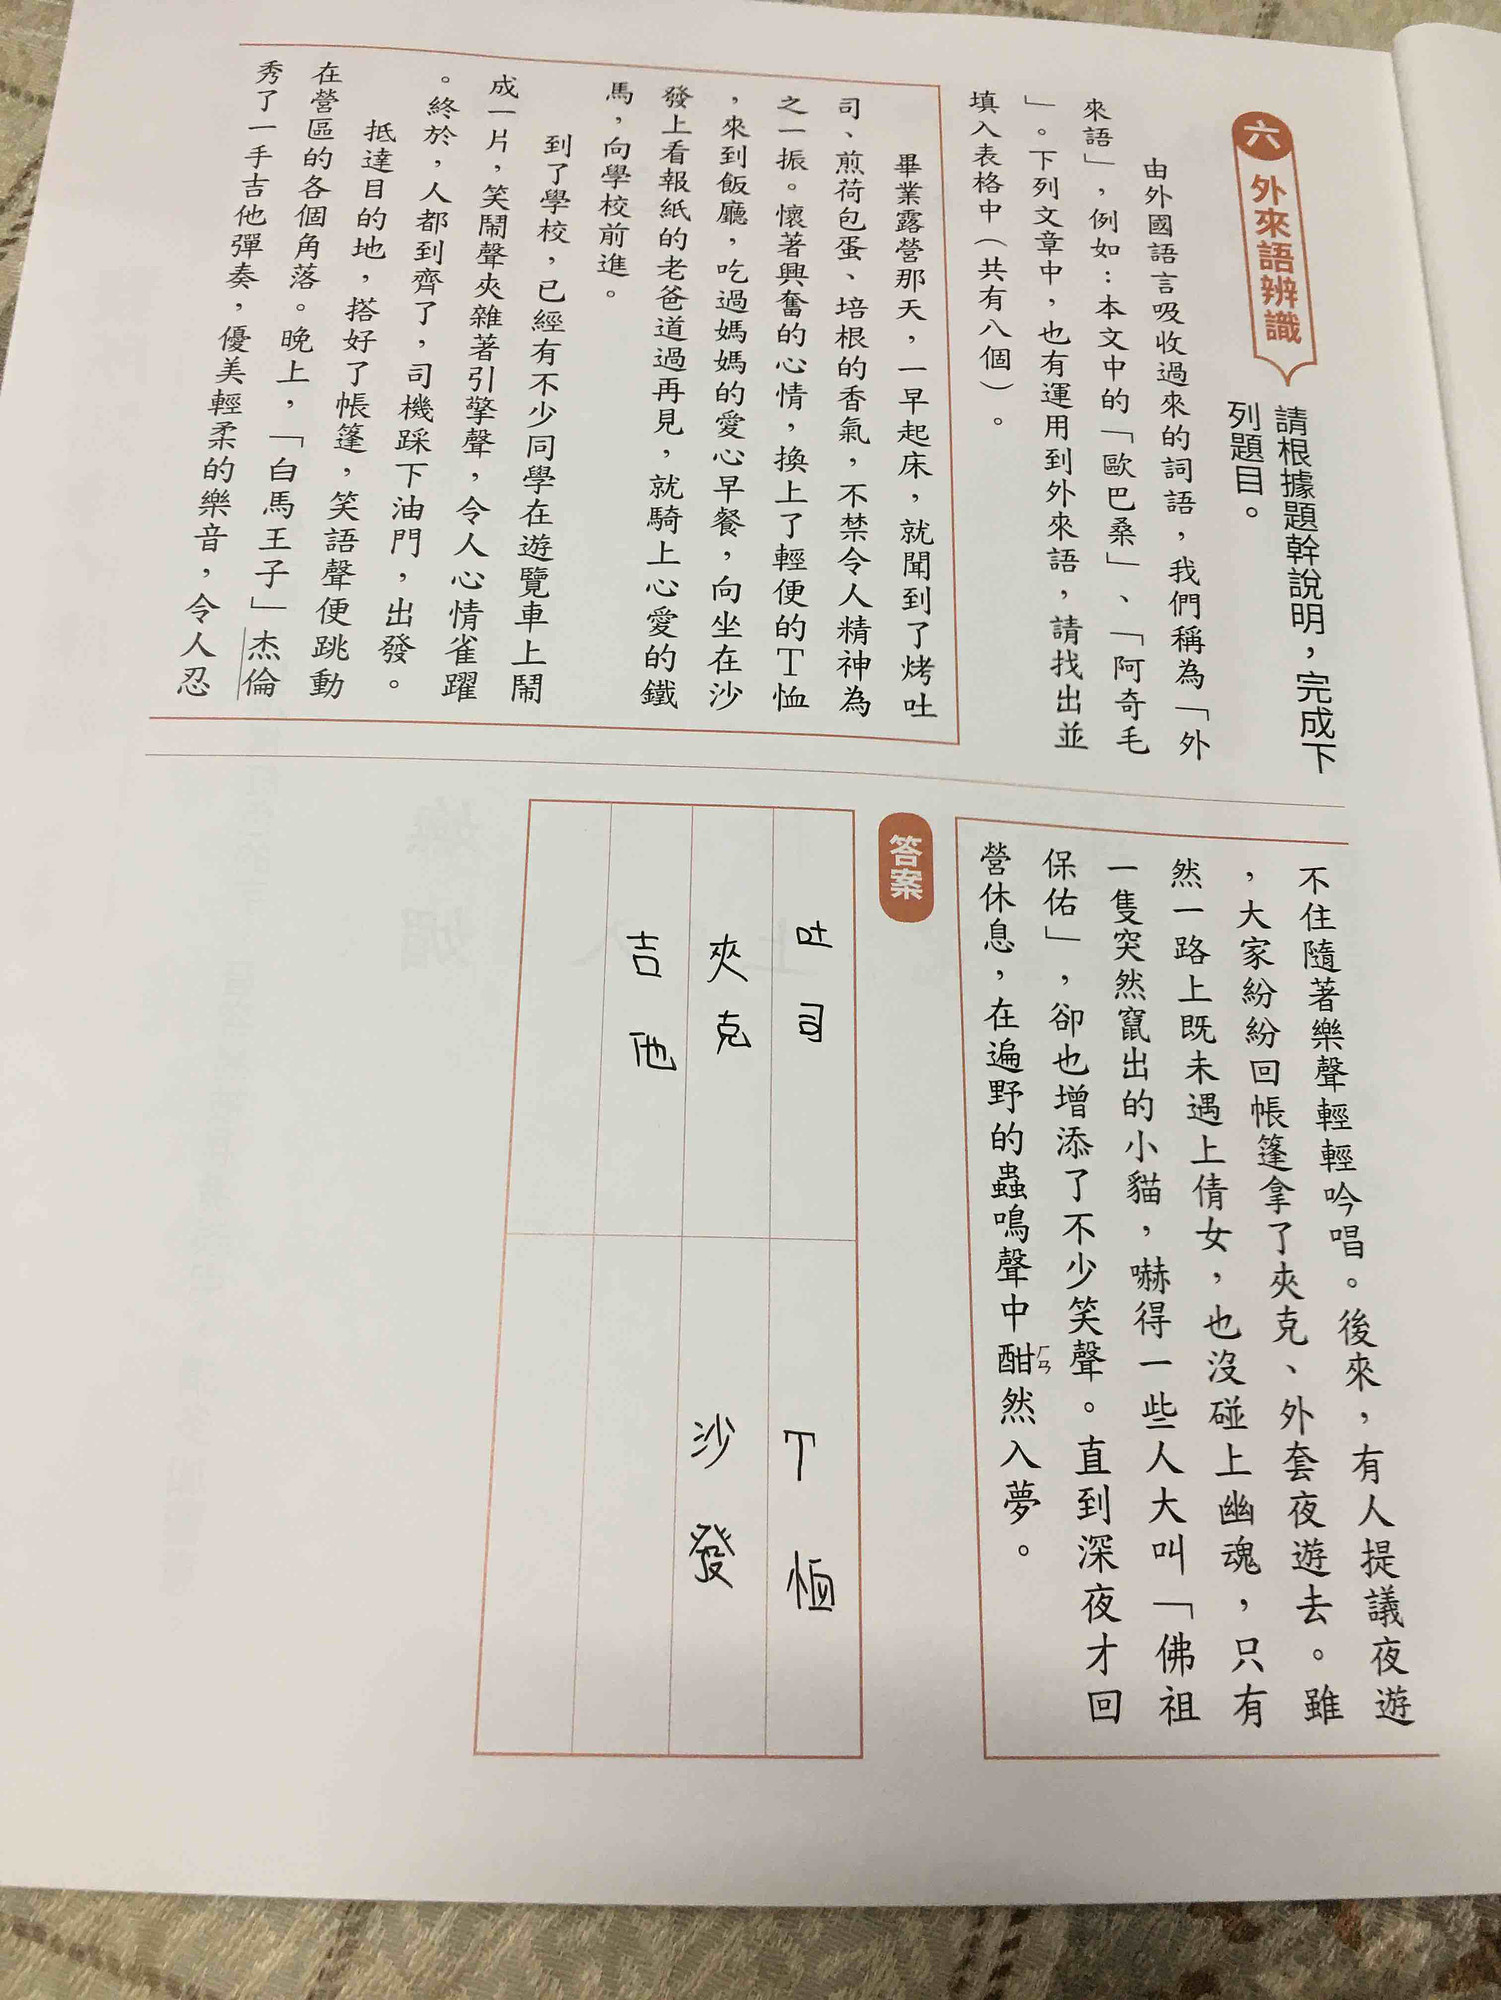 六 外來語辨識
請根據題幹說明，完成下
列題目。
由外國語言吸收過來的詞語，我們稱為「外
來語」，例如：本文中的「歐巴桑」、「阿奇毛
」。下列文章中，也有運用到外來語，請找出並
填入表格中（共有八個）。
畢業露營那天，一早起床，就聞到了烤吐
司、煎荷包蛋、培根的香氣，不禁令人精神為
之一振。懷著興奮的心情，換上了輕便的T恤
，來到飯廳，吃過媽媽的愛心早餐，向坐在沙
發上看報紙的老爸道過再見，就騎上心愛的鐵
馬，向學校前進。
到了學校，已經有不少同學在遊覽車上鬧
成一片，笑鬧聲夾雜著引擎聲，令人心情雀躍
。終於，人都到齊了，司機踩下油門，出發。
抵達目的地，搭好了帳篷，笑語聲便跳動
在營區的各個角落。晚上，「白馬王子」杰倫
秀了一手吉他彈奏，優美輕柔的樂音，令人忍
不住隨著樂聲輕輕吟唱。後來，有人提議夜遊
，大家紛紛回帳篷拿了夾克、外套夜遊去。雖
然一路上既未遇上倩女，也沒碰上幽魂，只有
一隻突然竄出的小貓，嚇得一些人大叫「佛祖
保佑」，卻也增添了不少笑聲。直到深夜才回
營休息，在遍野的蟲鳴聲中酣ㄏㄢ然入夢。
答案
吐司
T恤
夾克
沙發
吉他